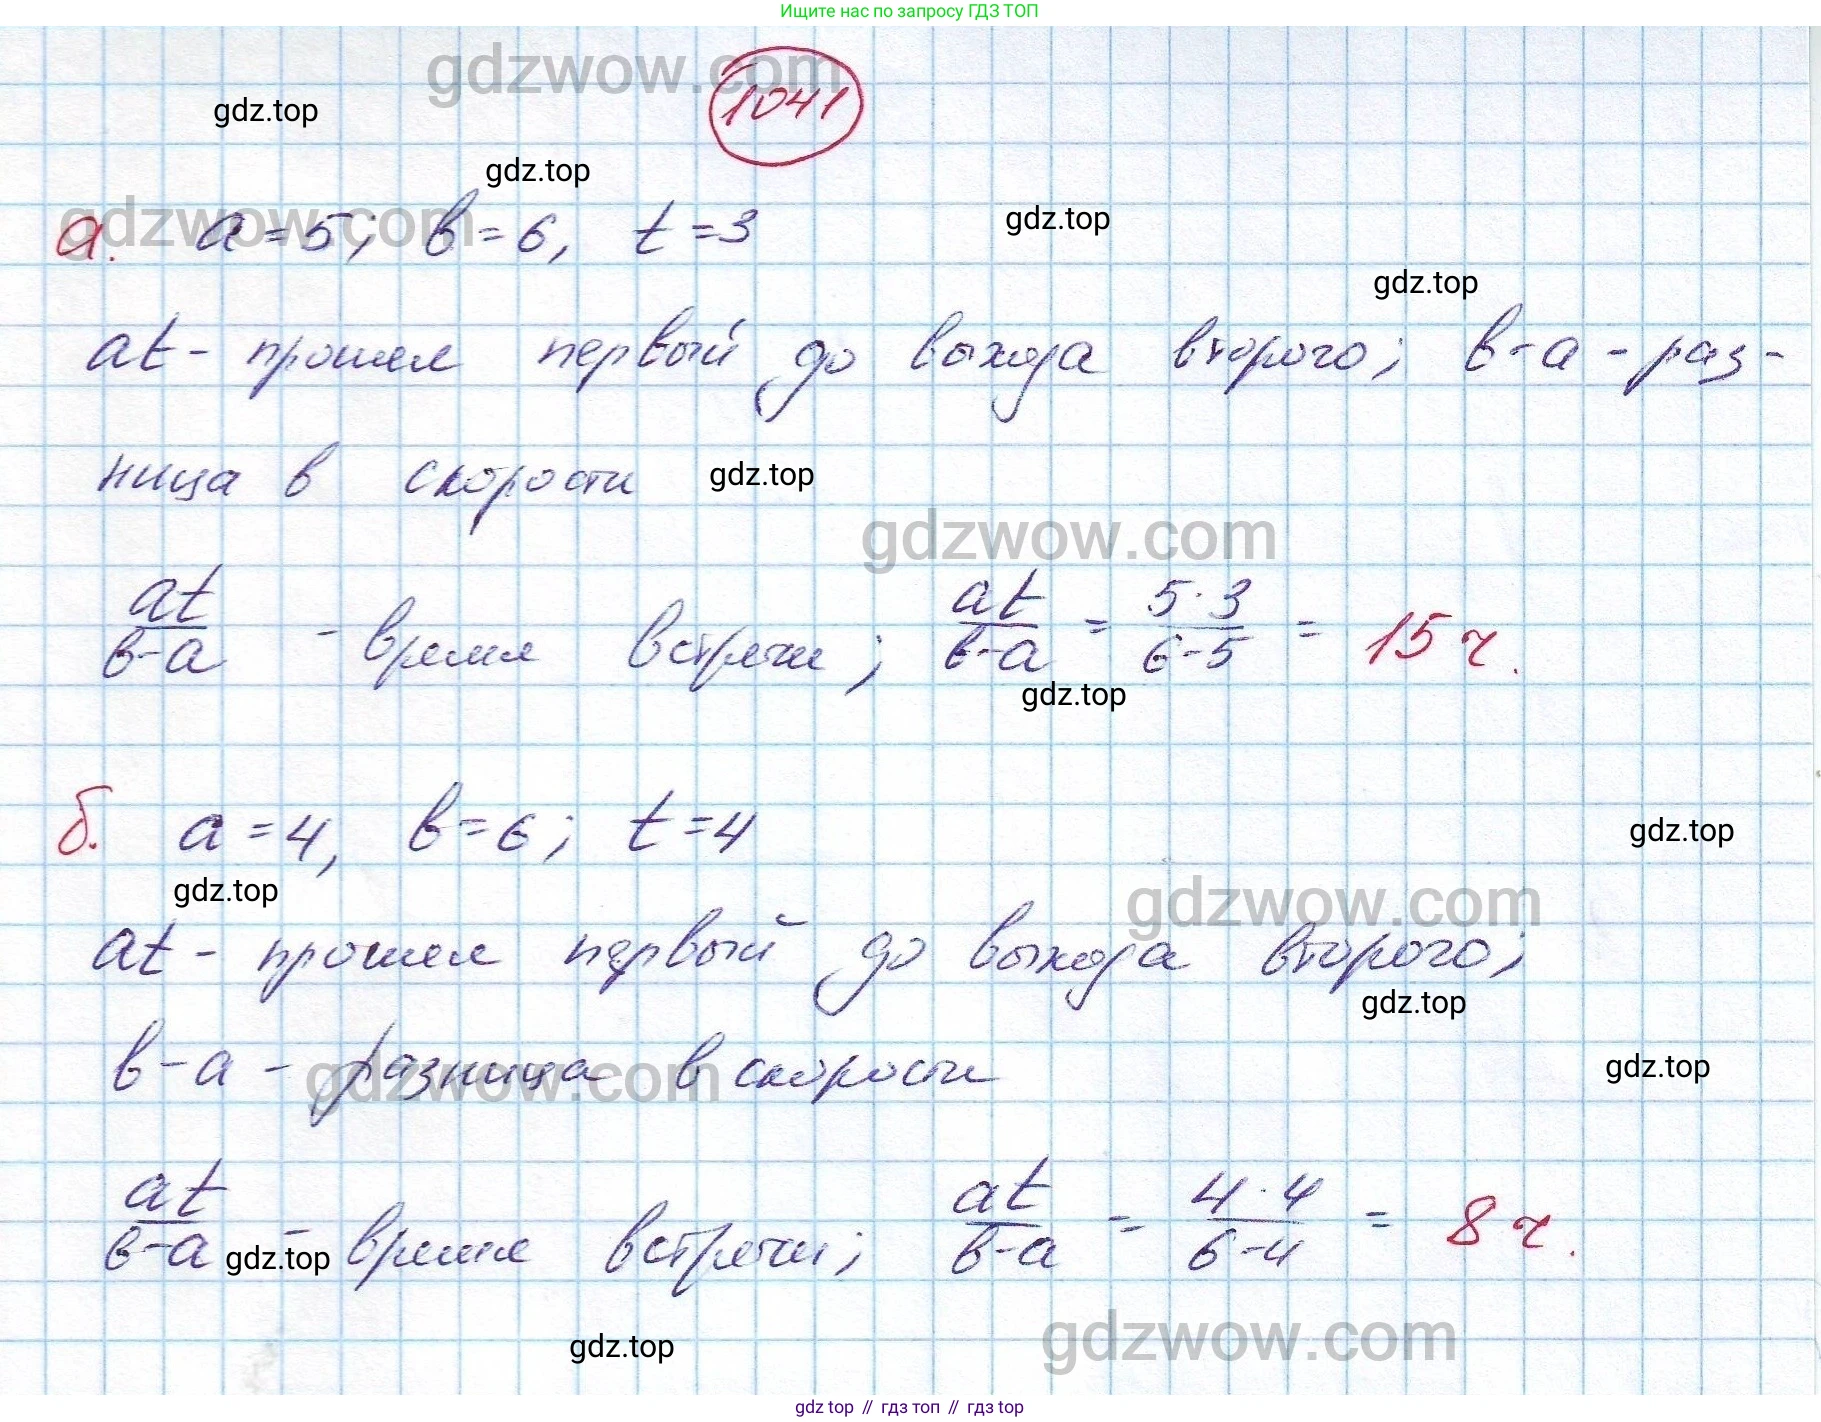 Ищите нас по запросу ГДЗ ТОП
gdzwow.com
1041
gdz.top
gdz.top
gdzwow.com
а. a=5; в=6, t=3
gdz.top
gdz.top
at - прошел первый до выхода второго; в-а - раз-
ница в скорости
gdz.top
gdzwow.com
at/в-а - время встречи; at/в-а = 5·3/6-5 = 15 ч.
gdz.top
б. a=4, в=6; t=4
gdz.top
gdz.top
gdzwow.com
at - прошел первый до выхода второго;
gdz.top
в-а - разница в скорости
gdzwow.com
gdz.top
at/в-а - время встречи; at/в-а = 4·4/6-4 = 8 ч.
gdz.top
gdz.top
gdzwow.com
gdz top // гдз топ // гдз top